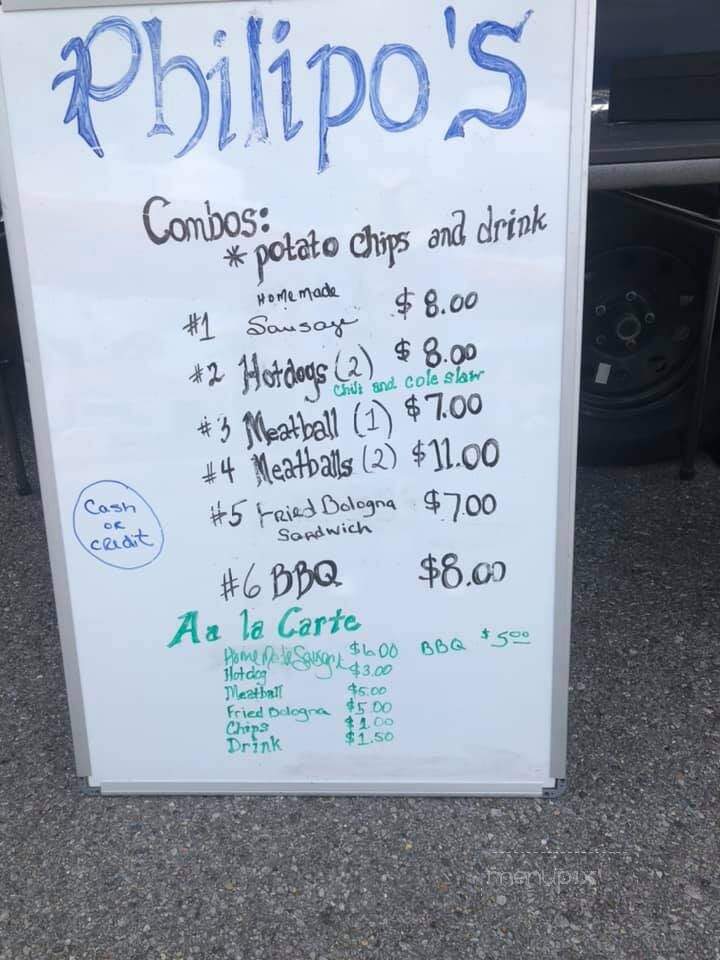 Philipo's
Combos:
* potato chips and drink
#1 Homemade Sausage $8.00
#2 Hotdogs (2) $8.00
Chili and cole slaw
#3 Meatball (1) $7.00
#4 Meatballs (2) $11.00
#5 Fried Bologna $7.00
Sandwich
Cash
or
credit
#6 BBQ $8.00
Aa la Carte
HomeMade Sausage $6.00 BBQ $5.00
Hotdog $3.00
Meatball $5.00
Fried Bologna $5.00
Chips $1.00
Drink $1.50
menupix